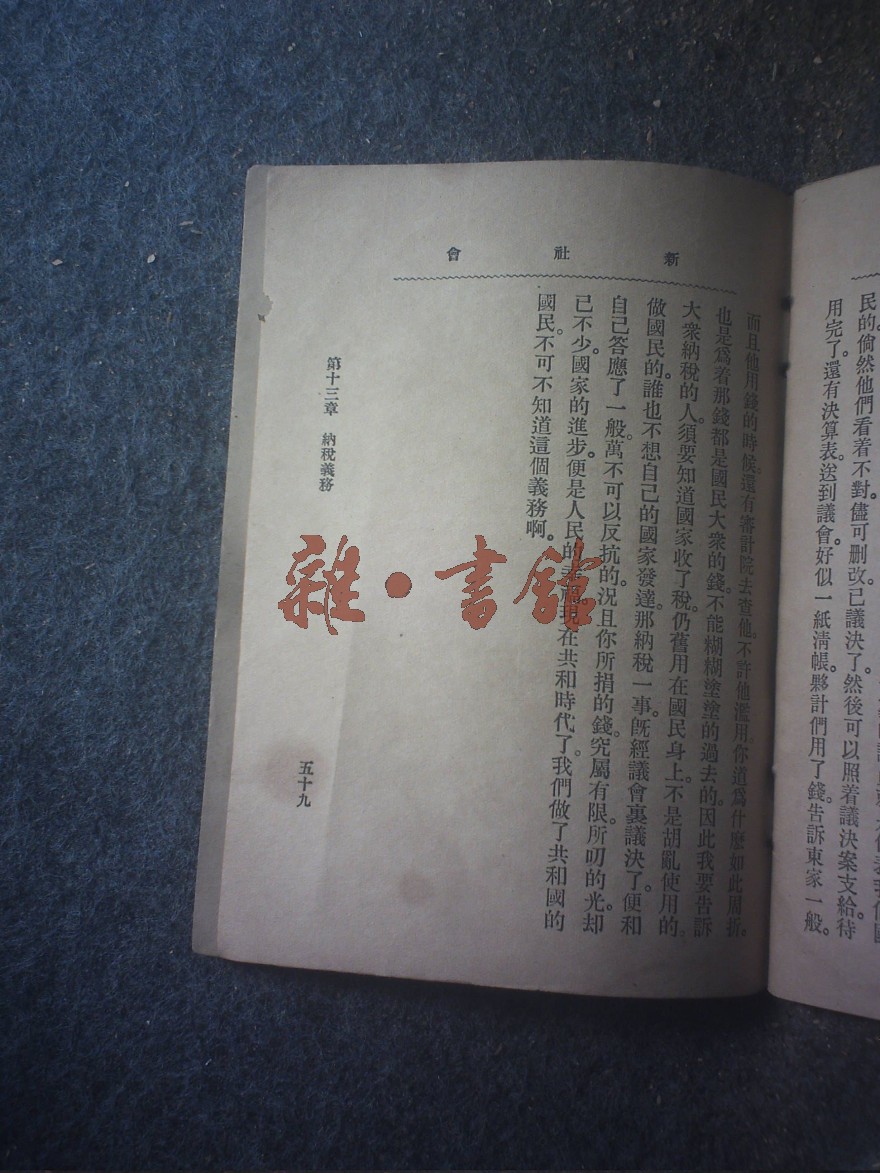 民的。倘然他們看着不對。儘可删改已議決了。然後可以照着議決案支給。待
用完了。還有決算表。送到議會。好似一紙淸帳。夥計們用了錢。告訴東家一般。
新社會
而且他用錢的時候。還有審計院去查他。不許他濫用。你道爲什麽如此周折。
也是爲着那錢都是國民大衆的錢。不能糊糊塗塗的過去的。因此我要告訴
大衆納稅的人。須要知道國家收了稅。仍舊用在國民身上。不是胡亂使用的。
做國民的。誰也不想自己的國家發達。那納稅一事。旣經議會裏議決了。便和
自己答應了一般。萬不可以反抗的。況且你所捐的錢。究屬有限。所叨的光。却
已不少。國家的進步。便是人民的幸福。現在共和時代了。我們做了共和國的
國民。不可不知道這個義務啊。
第十三章 納稅義務
五十九
雜·書館